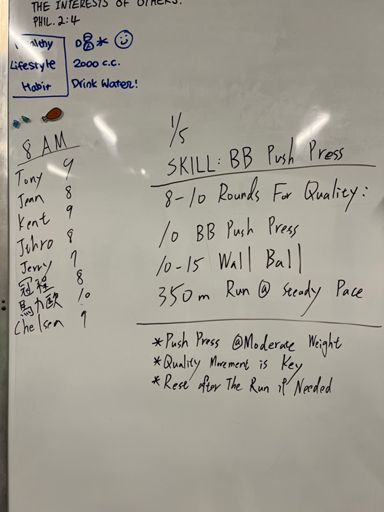 THE INTERESTS OF OTHERS.
PHIL. 2:4
Healthy
Lifestyle 2000 c.c.
Habit Drink Water!
8 AM
Tony 9
Jean 8
Kent 9
Jethro 8
Jerry 9
冠程 8
馬力歐 10
Chelsea 9
1/5
SKILL: BB Push Press
8-10 Rounds For Quality:
10 BB Push Press
10-15 Wall Ball
350m Run @ Steady Pace
*Push Press @Moderate Weight
*Quality Movement is Key
*Rest after The Run if Needed